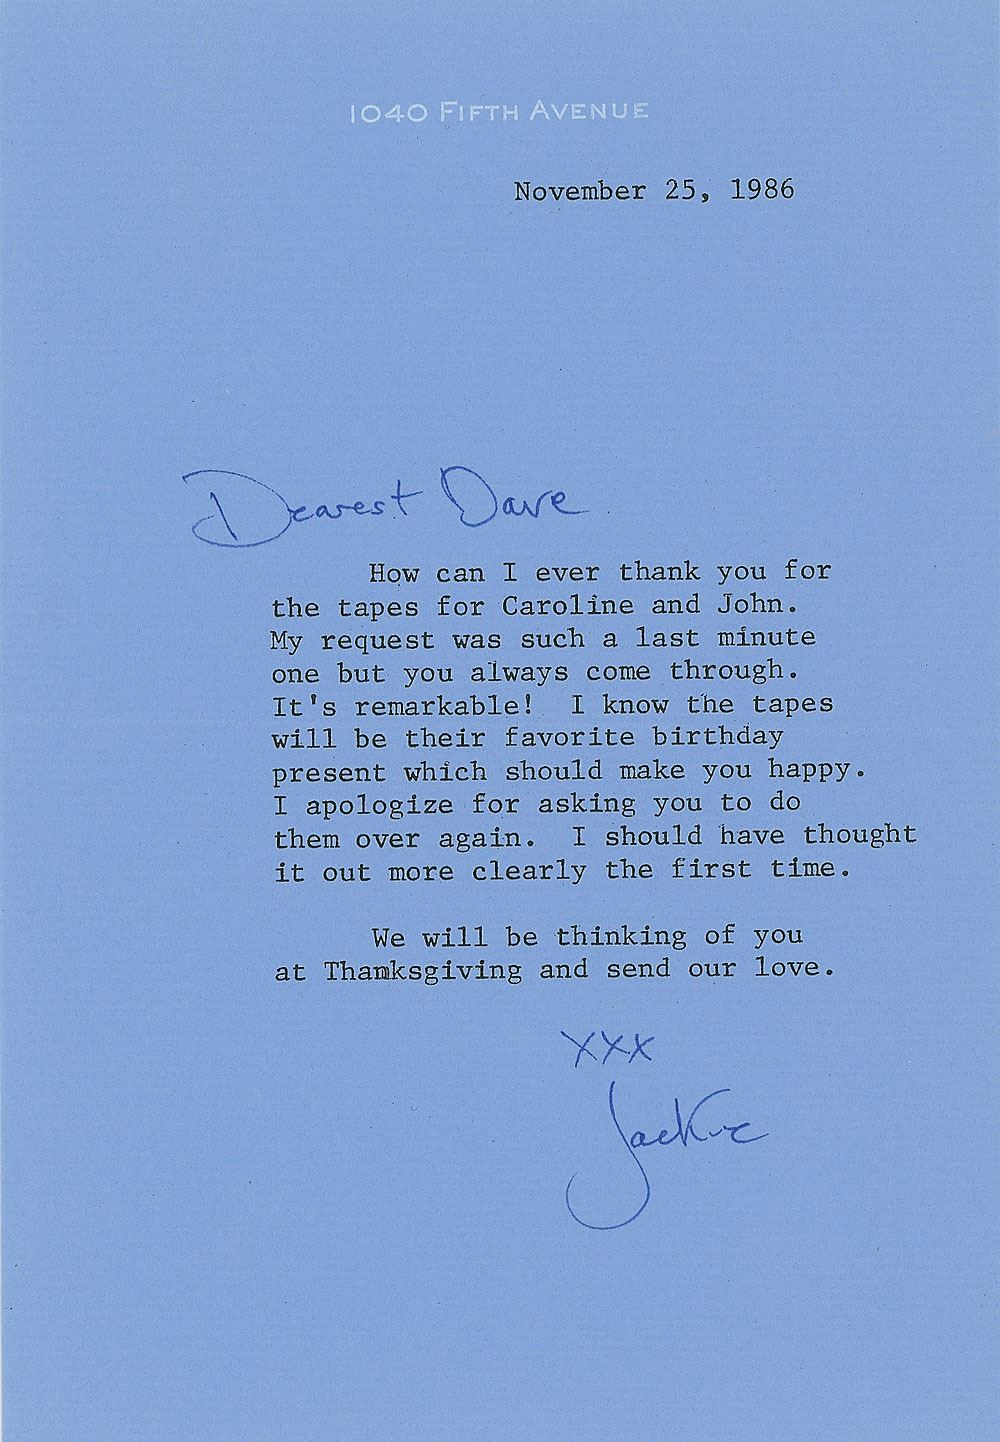 1040 FIFTH AVENUE
November 25, 1986
Dearest Dave
How can I ever thank you for
the tapes for Caroline and John.
My request was such a last minute
one but you always come through.
It's remarkable!  I know the tapes
will be their favorite birthday
present which should make you happy.
I apologize for asking you to do
them over again.  I should have thought
it out more clearly the first time.
We will be thinking of you
at Thanksgiving and send our love.
XXX
Jackie